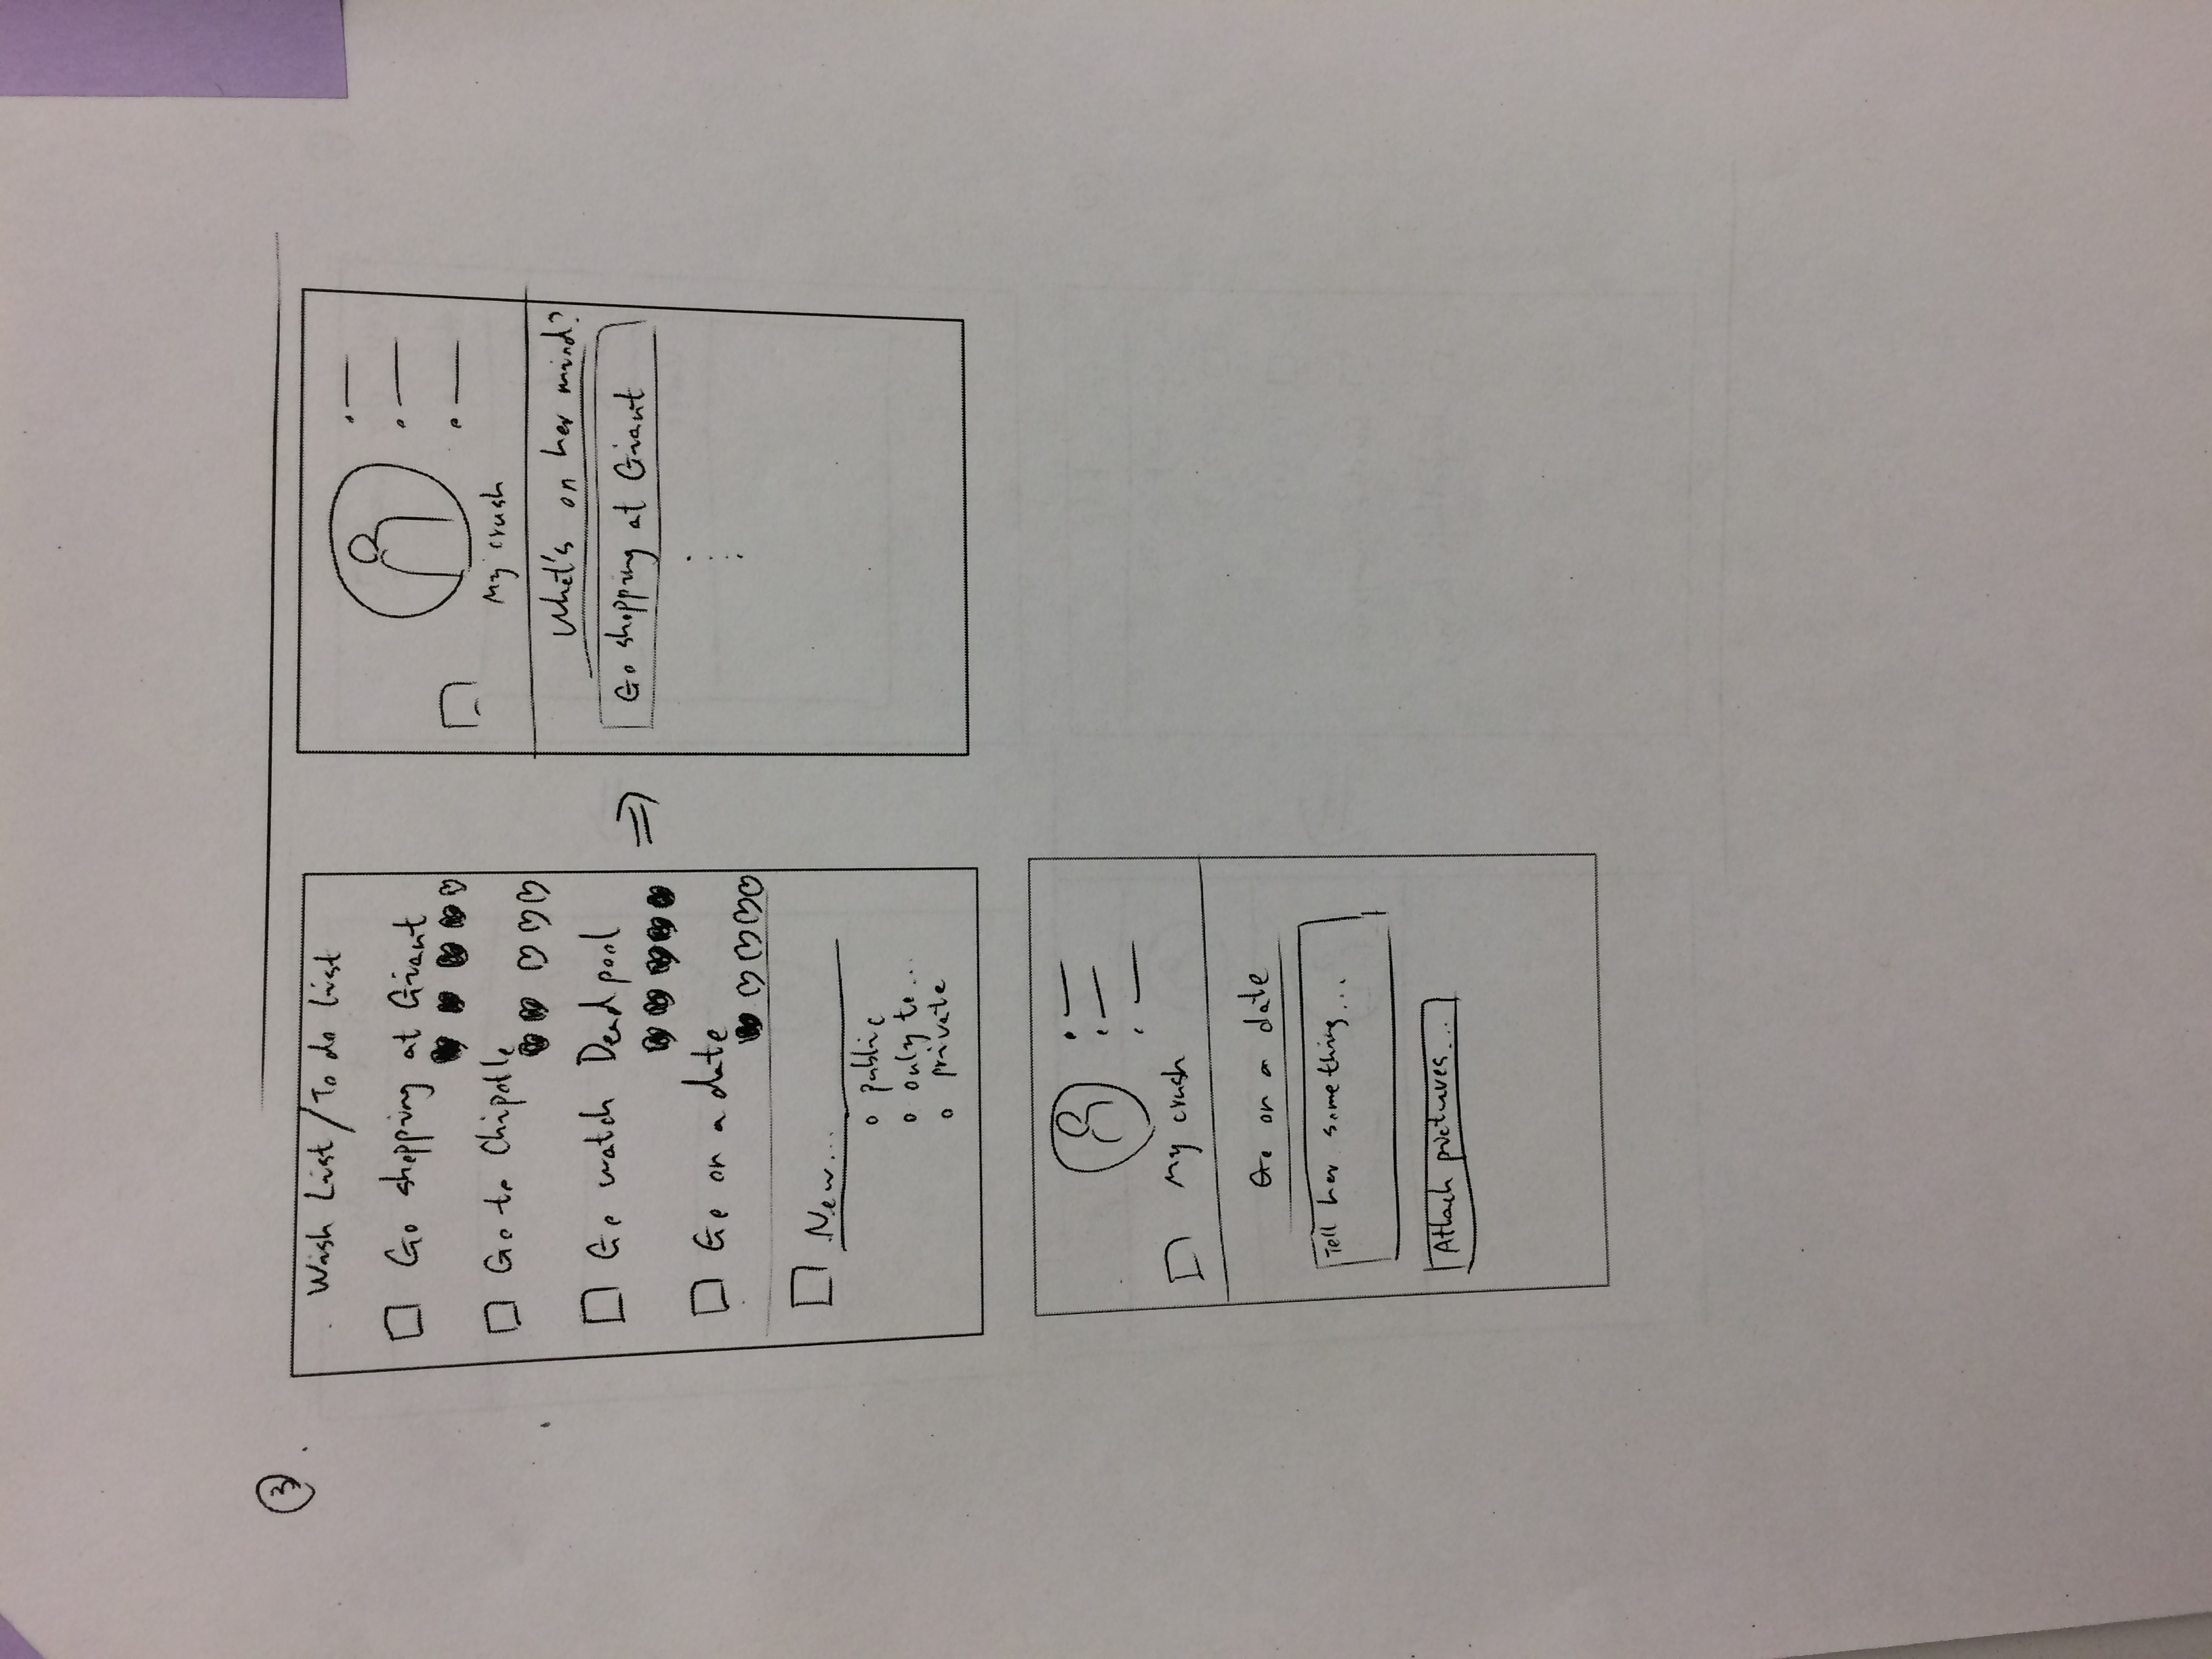 3.
Wish List/To do list
Go shopping at Giant
Go to Chipotle
Go watch Deadpool
Go on a date
New...
public
only to...
private
My crush
What's on her mind?
Go shopping at Giant
My crush
Go on a date
Tell her something...
Attach pictures...